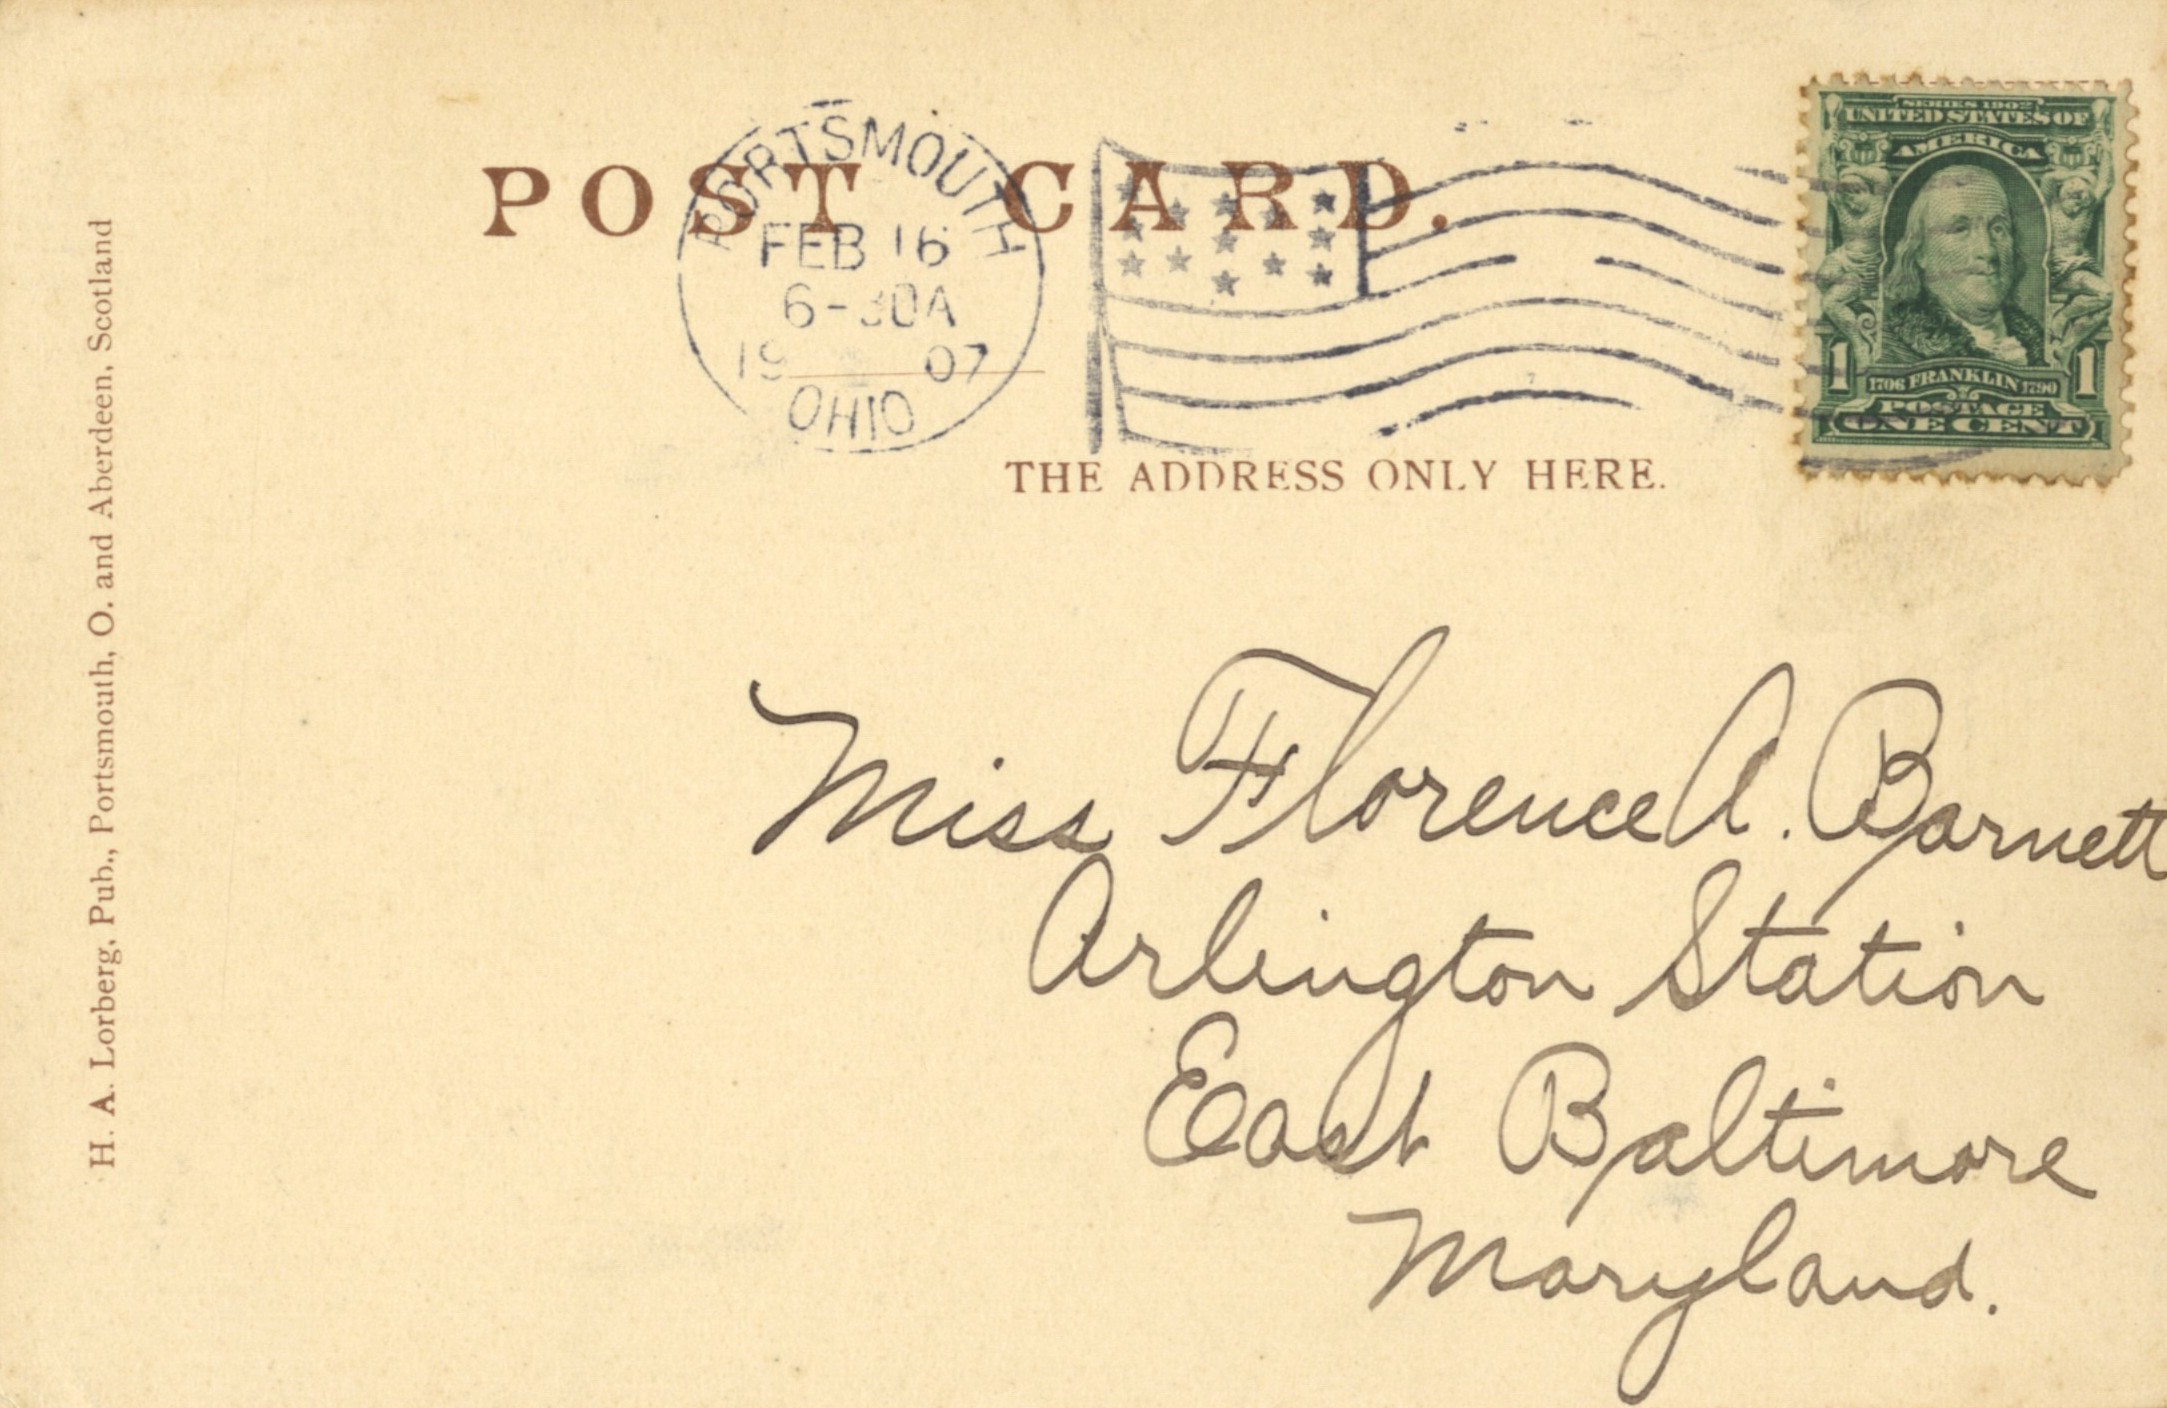 POST CARD.
PORTSMOUTH
FEB 16
6-30A
1907
OHIO
SERIES 1902
UNITED STATES OF
AMERICA
1 1
1706 FRANKLIN 1790
POSTAGE
ONE CENT
THE ADDRESS ONLY HERE.
H. A. Lorberg, Pub., Portsmouth, O. and Aberdeen, Scotland
Miss Florence A. Barnett
Arlington Station
East Baltimore
Maryland.